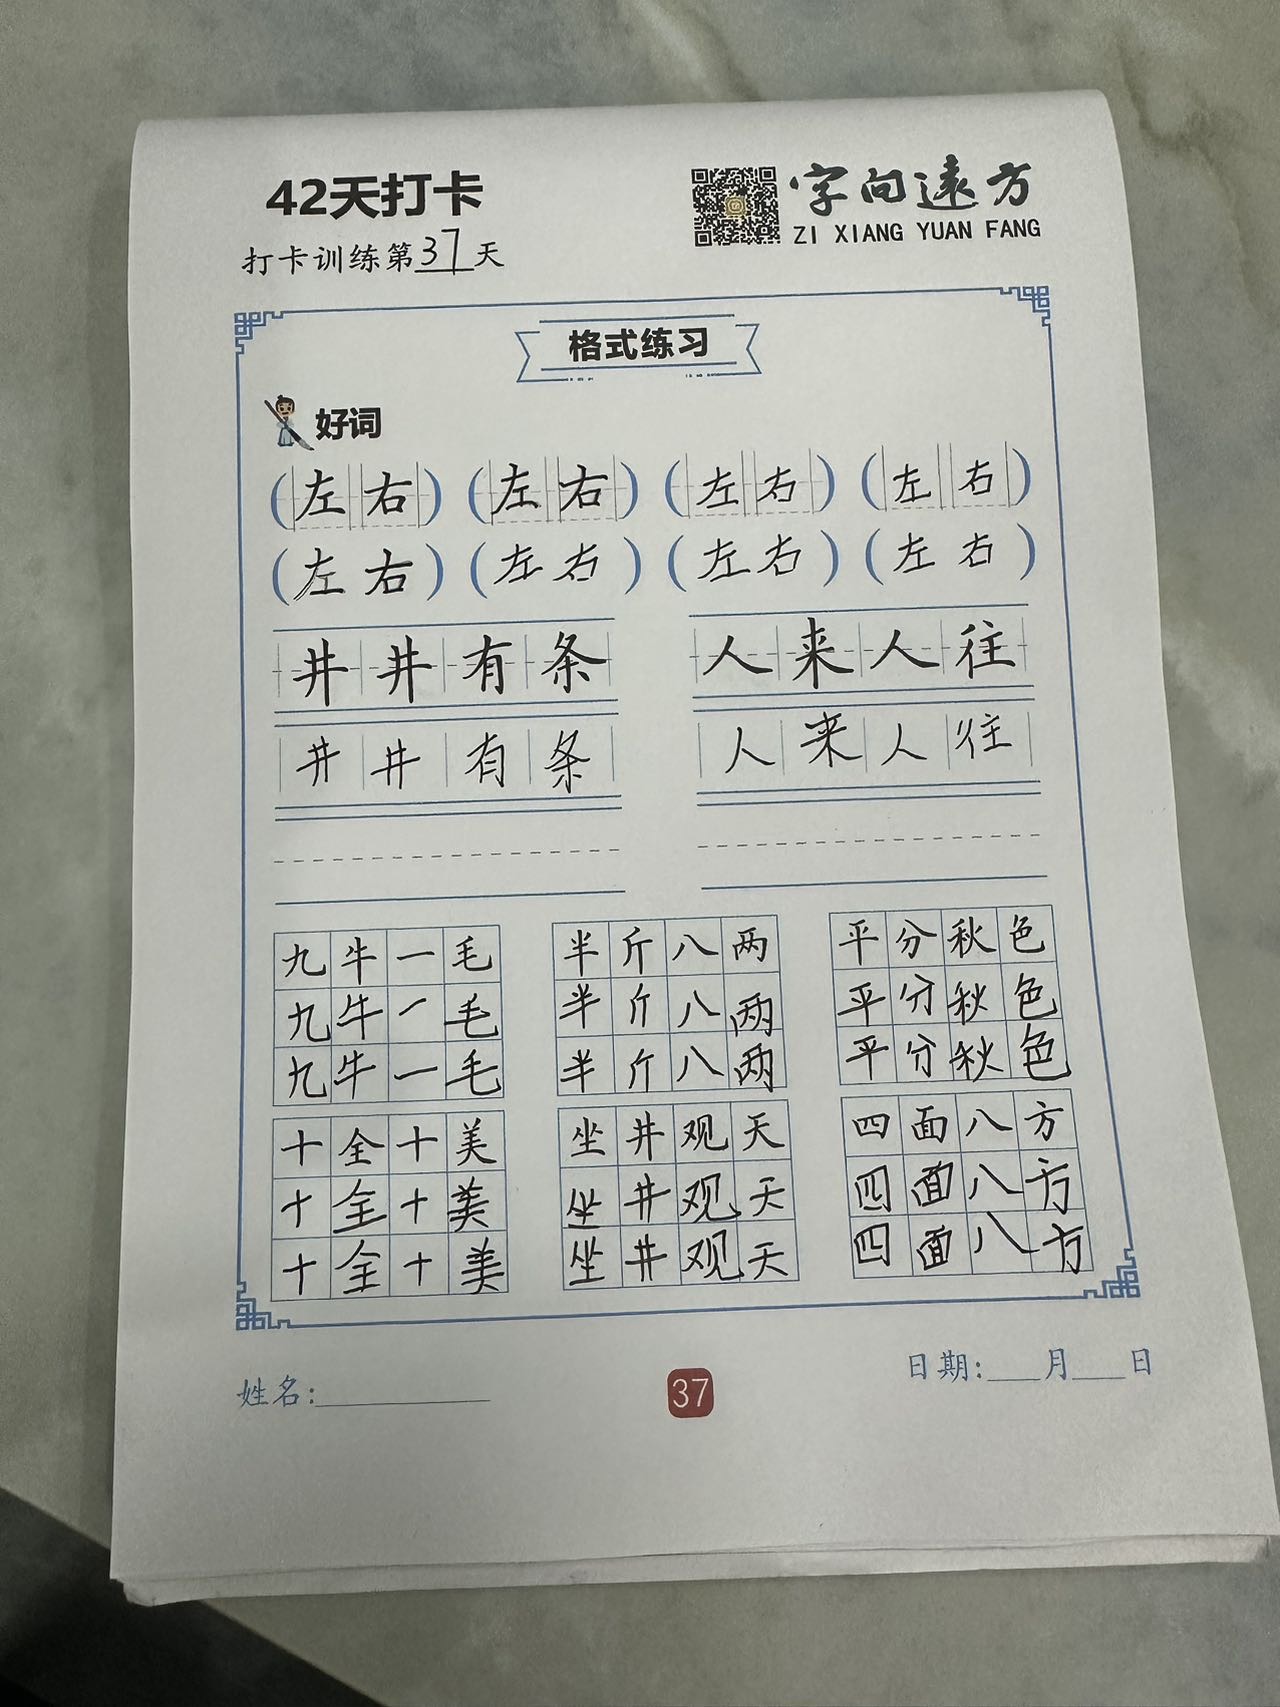 42天打卡
字向远方
打卡训练第37天
ZI XIANG YUAN FANG
格式练习
好词
(左右) (左右) (左右) (左右)
(左右) (左右) (左右) (左右)
井井有条 人来人往
井井有条 人来人往
九牛一毛 半斤八两 平分秋色
九牛一毛 半斤八两 平分秋色
九牛一毛 半斤八两 平分秋色
十全十美 坐井观天 四面八方
十全十美 坐井观天 四面八方
十全十美 坐井观天 四面八方
姓名:______ 37 日期:___月___日